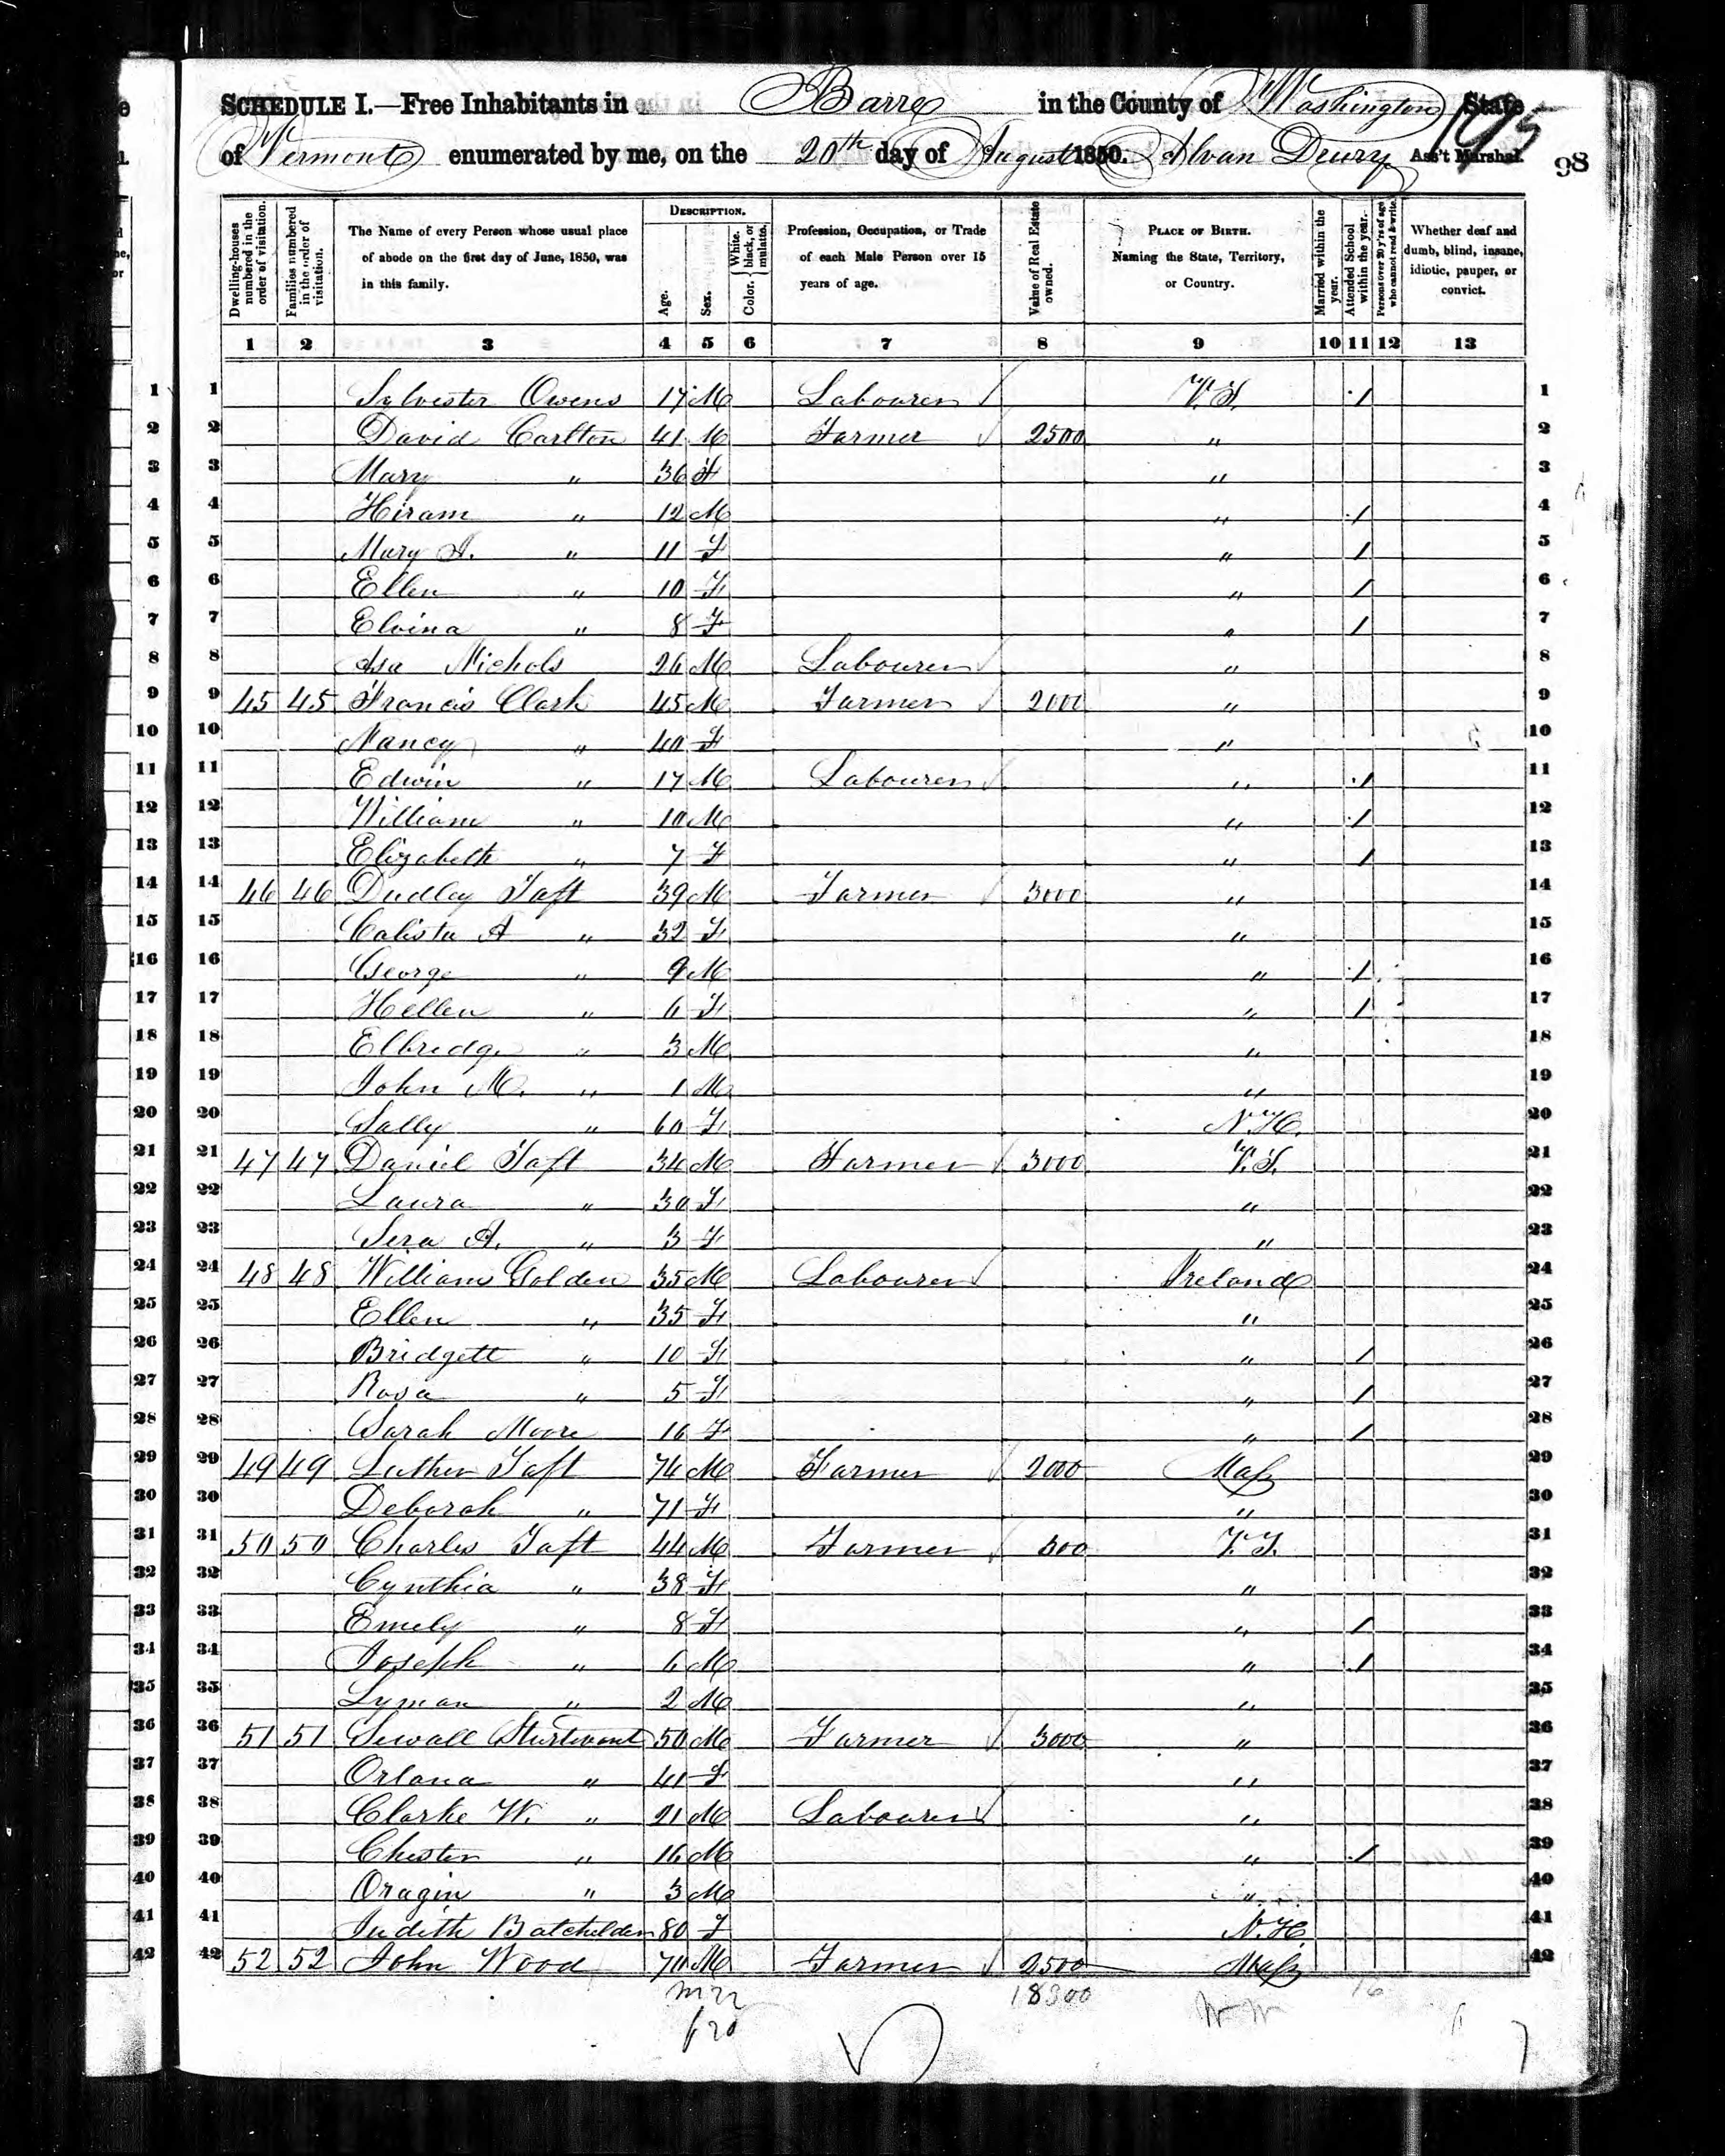 SCHEDULE I.—Free Inhabitants in Barre in the County of Washington State
of Vermont enumerated by me, on the 20th day of August 1850. Alvan Drury Ass't Marshal.
98
Dwelling-houses numbered in the order of visitation.
Families numbered in the order of visitation.
The Name of every Person whose usual place of abode on the first day of June, 1850, was in this family.
DESCRIPTION.
Age.
Sex.
Color. { White, black, or mulatto.
Profession, Occupation, or Trade of each Male Person over 15 years of age.
Value of Real Estate owned.
PLACE OF BIRTH. Naming the State, Territory, or Country.
Married within the year.
Attended School within the year.
Persons over 20 y'rs of age who cannot read & write.
Whether deaf and dumb, blind, insane, idiotic, pauper, or convict.
1 2 3 4 5 6 7 8 9 10 11 12 13
1 Sylvester Owens 17 M Labourer V.T. / 1
2 David Carlton 41 M Farmer 2500 " 2
3 Mary " 36 F " 3
4 Hiram " 12 M " / 4
5 Mary A. " 11 F " / 5
6 Ellen " 10 F " / 6
7 Elvina " 8 F " / 7
8 Asa Nichols 26 M Labourer " 8
9 45 45 Francis Clark 45 M Farmer 2000 " 9
10 Nancy " 40 F " 10
11 Edwin " 17 M Labourer " / 11
12 William " 10 M " / 12
13 Elizabeth " 7 F " / 13
14 46 46 Dudley Taft 39 M Farmer 3000 " 14
15 Calista A " 32 F " 15
16 George " 9 M " / 16
17 Hellen " 6 F " / 17
18 Elbridge " 3 M " 18
19 John M. " 1 M " 19
20 Sally " 60 F N.H. 20
21 47 47 Daniel Taft 34 M Farmer 3000 V.T. 21
22 Laura " 30 F " 22
23 Sera A. " 3 F " 23
24 48 48 William Golden 35 M Labourer Ireland 24
25 Ellen " 35 F " 25
26 Bridgett " 10 F " / 26
27 Rosa " 5 F " / 27
28 Sarah Moore 16 F " / 28
29 49 49 Luther Taft 74 M Farmer 2000 Mass 29
30 Deborah " 71 F " 30
31 50 50 Charles Taft 44 M Farmer 300 V.T. 31
32 Cynthia " 38 F " 32
33 Emely " 8 F " / 33
34 Joseph " 6 M " / 34
35 Lyman " 2 M " 35
36 51 51 Sewall Sturtevant 50 M Farmer 3000 " 36
37 Orlana " 41 F " 37
38 Clarke W. " 21 M Labourer " 38
39 Chester " 16 M " / 39
40 Oragin " 3 M " 40
41 Judith Batchelder 80 F N.H. 41
42 52 52 John Wood 70 M Farmer 2500 Mass 42
m 22 18300 16
f 20